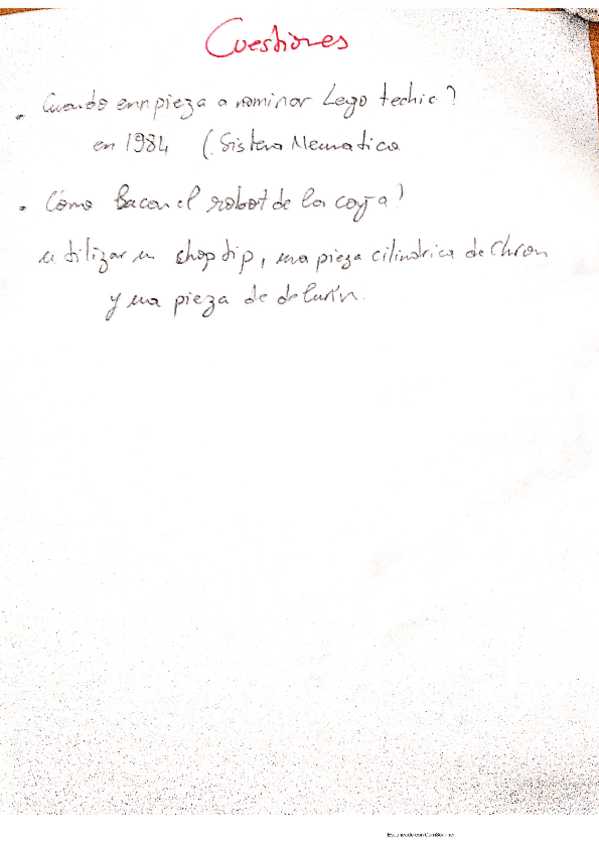 Cuestiones
. Cuando empieza a nominar Lego techic?
en 1984 (Sistema Neumatico
. Cómo sacan el robot de la caja?
utilizar un , una pieza cilindrica de
y una pieza de
Escaneado con CamScanner